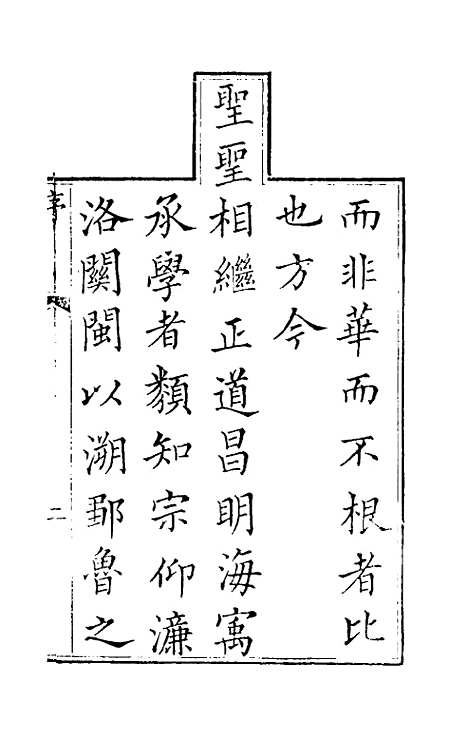 而非華而不根者比
也方今
聖聖相繼正道昌明海寓
承學者類知宗仰濂
洛關閩以溯鄒魯之
序
二